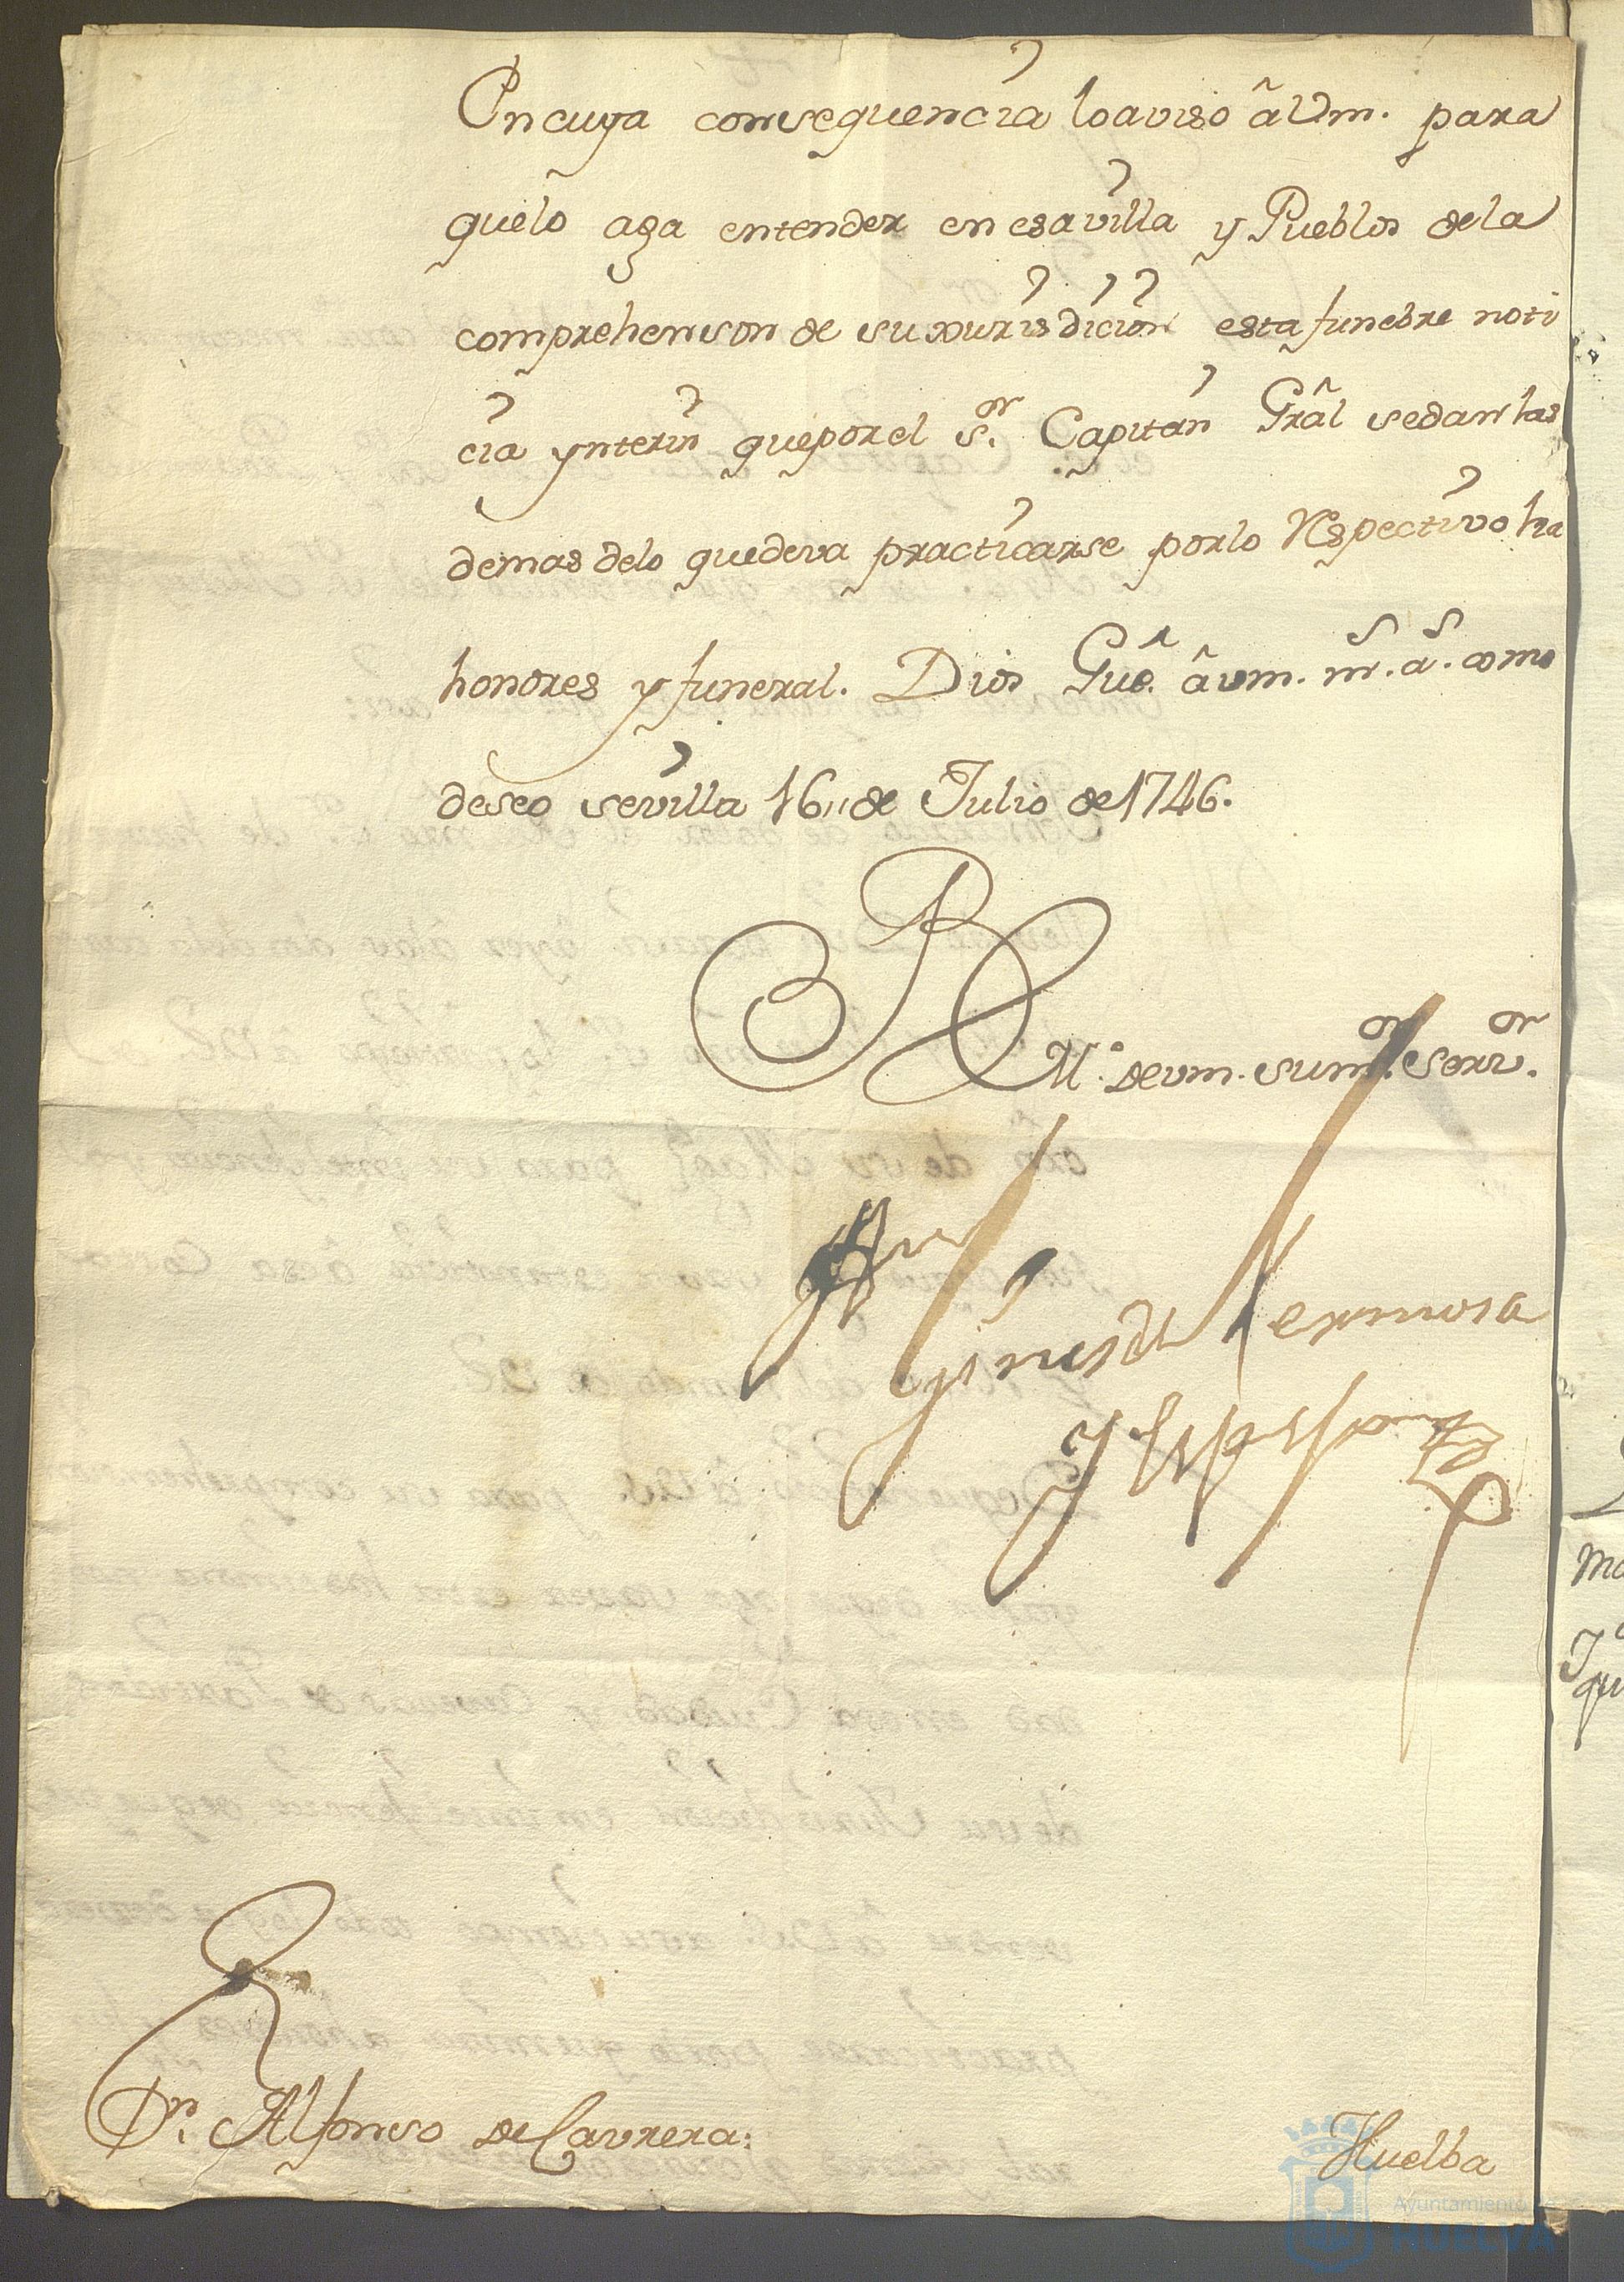 En cuya consequencia lo aviso â Vm. para
que lo aga entender en esa villa y Pueblos de la
comprehenson de su xurisdicion esta funebre noti
cia ynterin que por el S.or Capitan Grâl se dan las
demas de lo que deva practicarse por lo Respectivo ha
honores y funeral. Dios Gûe. â vm. m.s a.s como
deseo sevilla 16,, de Julio de 1746.
B L
M.o de vm. su m.or Serv.or
Gines de Hermosa
y Espejo
D.n Alfonso de Cavrera:
Huelba
Ayuntamiento de
HUELVA